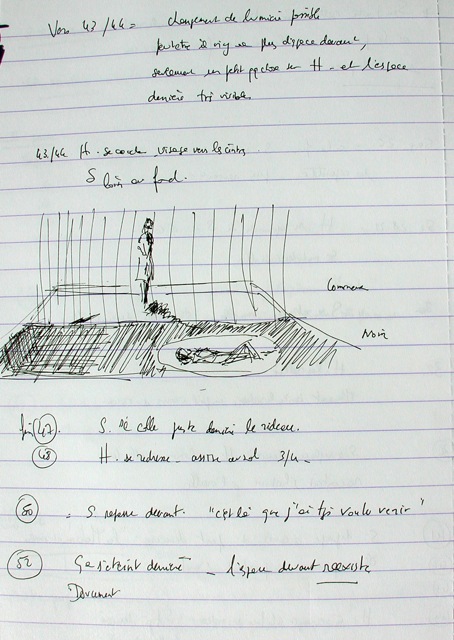 Vers 43/44 = changement de lumière possible
peut-être il n'y a plus d'espace devant,
seulement un petit sur H - et l'espace
derrière très visible
43/44 H. se couche, visage vers les cintres
S loin au fond.
Noir
fin 47. S. se colle juste derrière le rideau.
48 H. se redresse - assise au sol 3/4 -
50 - S repasse devant. "c'est là que j'ai tjs voulu venir"
52 Ça s'éteint derrière - l'espace devant réexiste
Doucement